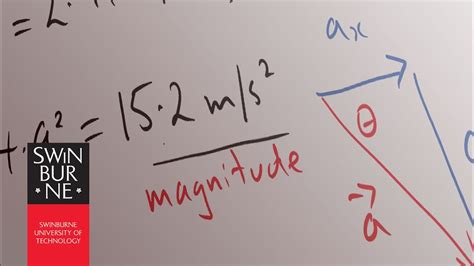 ax
+ a² = 15.2 m/s²
magnitude
θ
a
SWiN
BUR
* NE *
SWINBURNE
UNIVERSITY OF
TECHNOLOGY